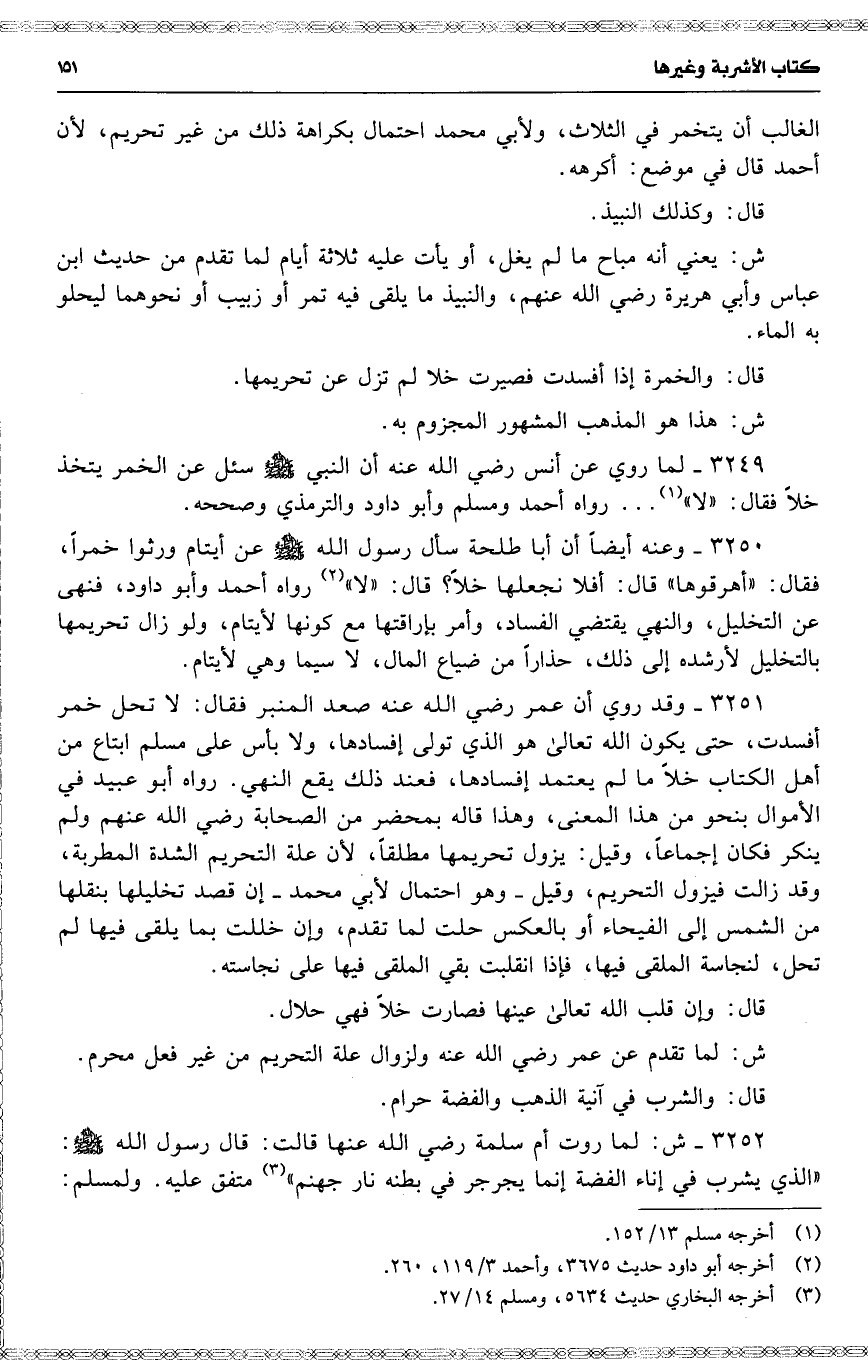 كتاب الأشربة وغيرها ١٥١
الغالب أن يتخمر في الثلاث، ولأبي محمد احتمال بكراهة ذلك من غير تحريم، لأن
أحمد قال في موضع: أكرهه.
قال: وكذلك النبيذ.
ش: يعني أنه مباح ما لم يغل، أو يأت عليه ثلاثة أيام لما تقدم من حديث ابن
عباس وأبي هريرة رضي الله عنهم، والنبيذ ما يلقى فيه تمر أو زبيب أو نحوهما ليحلو
به الماء.
قال: والخمرة إذا أفسدت فصيرت خلا لم تزل عن تحريمها.
ش: هذا هو المذهب المشهور المجزوم به.
٣٢٤٩ ـ لما روي عن أنس رضي الله عنه أن النبي ﷺ سئل عن الخمر يتخذ
خلاً فقال: «لا»(١)... رواه أحمد ومسلم وأبو داود والترمذي وصححه.
٣٢٥٠ ـ وعنه أيضاً أن أبا طلحة سأل رسول الله ﷺ عن أيتام ورثوا خمراً،
فقال: «أهرقوها» قال: أفلا نجعلها خلاً؟ قال: «لا»(٢) رواه أحمد وأبو داود، فنهى
عن التخليل، والنهي يقتضي الفساد، وأمر بإراقتها مع كونها لأيتام، ولو زال تحريمها
بالتخليل لأرشده إلى ذلك، حذاراً من ضياع المال، لا سيما وهي لأيتام.
٣٢٥١ ـ وقد روي أن عمر رضي الله عنه صعد المنبر فقال: لا تحل خمر
أفسدت، حتى يكون الله تعالىٰ هو الذي تولى إفسادها، ولا بأس على مسلم ابتاع من
أهل الكتاب خلاً ما لم يعتمد إفسادها، فعند ذلك يقع النهي. رواه أبو عبيد في
الأموال بنحو من هذا المعنى، وهذا قاله بمحضر من الصحابة رضي الله عنهم ولم
ينكر فكان إجماعاً، وقيل: يزول تحريمها مطلقاً، لأن علة التحريم الشدة المطربة،
وقد زالت فيزول التحريم، وقيل ـ وهو احتمال لأبي محمد ـ إن قصد تخليلها بنقلها
من الشمس إلى الفيحاء أو بالعكس حلت لما تقدم، وإن خللت بما يلقى فيها لم
تحل، لنجاسة الملقى فيها، فإذا انقلبت بقي الملقى فيها على نجاسته.
قال: وإن قلب الله تعالىٰ عينها فصارت خلاً فهي حلال.
ش: لما تقدم عن عمر رضي الله عنه ولزوال علة التحريم من غير فعل محرم.
قال: والشرب في آنية الذهب والفضة حرام.
٣٢٥٢ ـ ش: لما روت أم سلمة رضي الله عنها قالت: قال رسول الله ﷺ:
«الذي يشرب في إناء الفضة إنما يجرجر في بطنه نار جهنم»(٣) متفق عليه. ولمسلم:
(١) أخرجه مسلم ١٣/ ١٥٢.
(٢) أخرجه أبو داود حديث ٣٦٧٥، وأحمد ٣/ ١١٩، ٢٦٠.
(٣) أخرجه البخاري حديث ٥٦٣٤، ومسلم ١٤/ ٢٧.